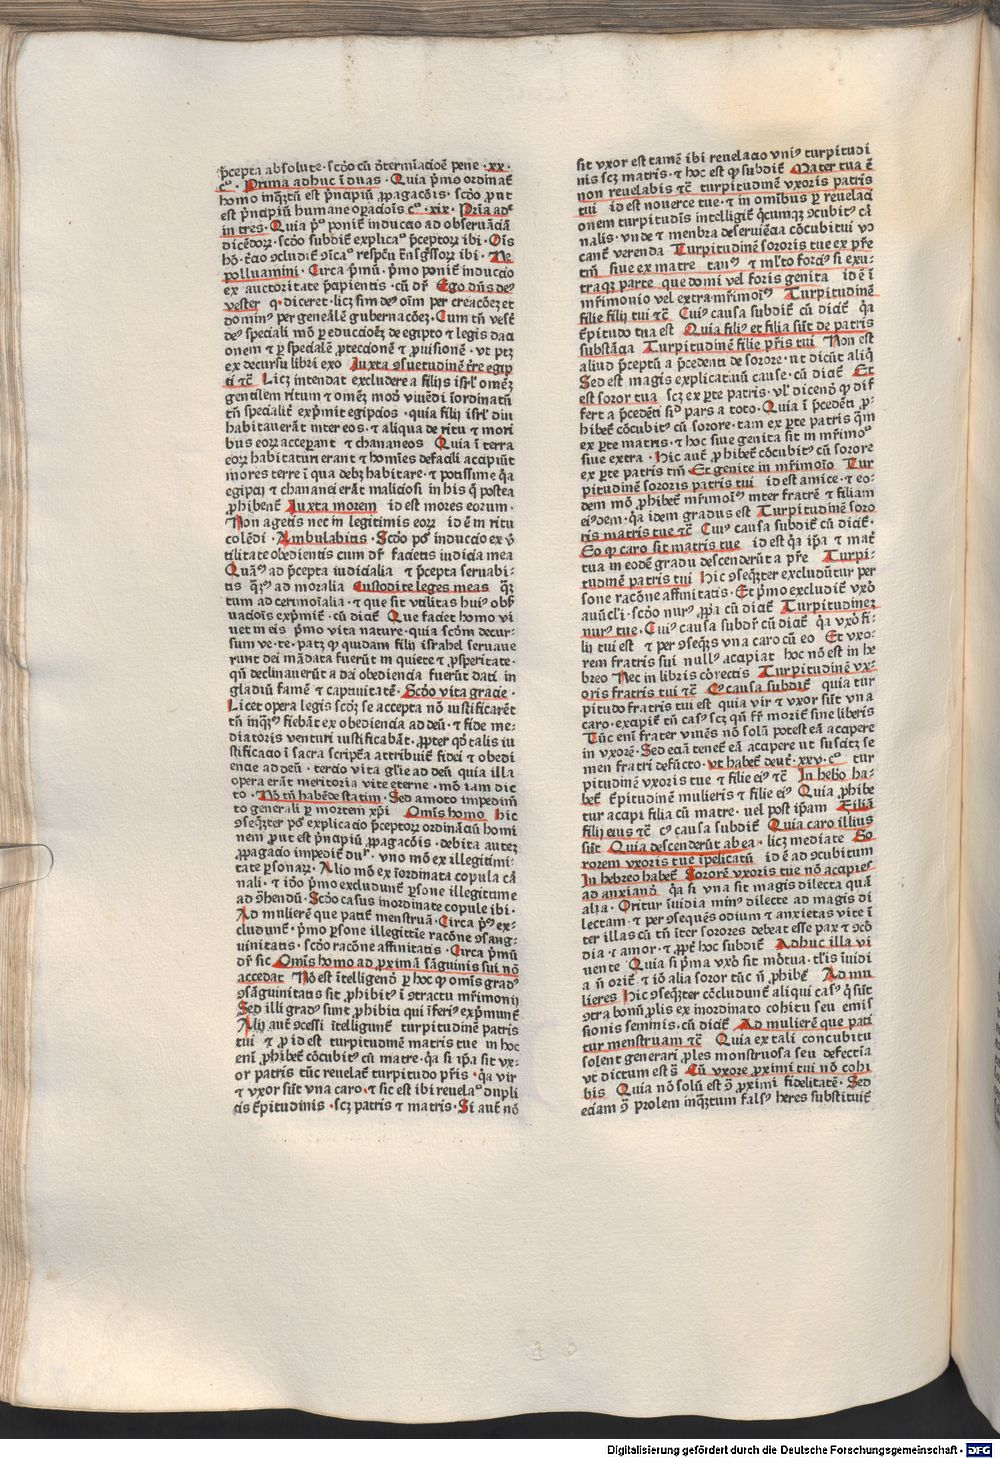 p̄cepta absolute · scḋo cū ꝯ̄termīacioē pene · xx ·
cº · Prima adhuc ī duas · Quia p̄mo ordinat̄
homo inq̄ꝫtū est p̄ncipiū ꝓpagacōis · scḋo ꝓut
est p̄ncipiū humane oꝑaciōis cº · xix · Pr̄ia adº
in tres · Quia pº ponit̄ inductio ad obseruācīā
dicēdoꝝ · scḋo subdit̄ explicaº p̄ceptoꝝ ibi · Oīs
polluamini · Circa p̄mū · p̄mo ponit̄ inductio
ex auctoritate p̄cipientis · cū dr̄ Ego dn̄s deꝰ
vester q · diceret · licꝫ sim deꝰ oīm per creacōeꝫ et
dominꝰ per geneālē gubernacōeꝫ · Cum tn̄ vest̄
deꝰ speciali mō ꝑ eductioēꝫ de egipto et legis daci
onem et ꝑ specialē ꝓtectionē et ꝓuisionē · vt ptꝫ
ex decursu libri exo Juxta ꝯsuetudinē t̄re egip
ti tc̄ Licꝫ intendat excludere a filijs isrl̄ omēꝫ
gentilem ritum et omēꝫ modū viuēdi īordinatū
tn̄ specialit̄ exp̄mit egipcios · quia filij isrl̄ diu
habitauerāt inter eos · et aliqua de ritu et mori
bus eoꝝ acceꝑant et chananeos Quia ī terra
eoꝝ habitaturi erant et homīes defacili accipiūt
mores terre ī qua debꝫ habitare · et potissime q̄a
egipcij et chananei erāt maliciosi in his q̄ postea
ꝓhibent̄ Juxta morem id est mores eorum ·
Non agetis nec in legitimis eoꝝ id ē in ritu
colēdi · Ambulabitis · Scḋo pōº inductio ex v̄
tilitate obedientis cum dr̄ facietis iudicia mea
Quāꝫ ad p̄cepta iudicialia et p̄cepta seruabi-
tis q̄ꝫꝰ ad moralia Custodite leges meas q̄ꝫ
tum ad cerimoīalia · et que sit vtilitas huiꝰ obẜ
uacioīs exp̄mit̄ · cū dicit̄ Que faciet homo vi
uet in eis p̄mo vita nature · quia scd̄m decur-
sum ve · te · patꝫ ꝙ quidam filij israhel seruaue
runt dei mādata fuerūt in quiete et ꝓsperitate ·
qn̄ declinauerūt a dei obediencia fuerūt dati in
gladiū famē et captiuitatē · Scḋo vita gracie ·
Licet opera legis scḋꝫ se accepta nō iustificarēt
tn̄ inq̄ꝫꝰ fiebāt ex obediencia ad deū · et fide me-
diatoris venturi iustificabāt · ꝓpter qḋ talis iu
stificacio ī sacra script̄a attribuit̄ fidei et obedi
encie ad deū · tercio vita gl̄ie ad deū quia illa
opera erāt meritoria vite eterne · mō iam dic
to · Nō tn̄ habēde statim · Sed amoto impedim̄
to generali ꝑ mortem xp̄i Om̄is homo Hic
ꝯseq̄ꝫter pōº explicacio p̄ceptoꝝ ordinācīū homi
nem ꝓut est p̄ncipiū ꝓpagacōis · debita auteꝫ
ꝓpagacio impedit̄ duꝰ · vno mō ex illegitimi-
tate ꝑsonaꝝ · Alio mō ex īordinata copula cā
nali · et iḋo p̄mo excludunt̄ ꝑsone illegittime
ad ꝯ̄hendū · Scḋo casus inordinate copule ibi ·
Ad mulierē que patit̄ menstruā · Circa p̄ꝰ ex-
cludunt̄ · p̄mo ꝑsone illegittīe racōne ꝯsang-
uinitatis · scḋo racōne affinitatis · Circa p̄mū
dr̄ sic Om̄is homo ad ꝓximā sāguinis sui nō
accedat Nō est ītelligenḋ ꝑ hoc ꝙ omīs gradꝰ
ꝯsāguinitatis sit ꝓhibitꝰ ī ꝯtractu mr̄imonij
Sed illi gradꝰ sunt ꝓhibiti qui īferiꝰ exp̄munt̄
Alij aut̄ ꝯcessi ītelligunt̄ turpitudinē patris
tui et ꝓ id est turpitudinē matris tue in hoc
enī ꝓhibet̄ cōcubitꝰ cū matre · q̄a si ip̄a sit vx-
or patris tūc reuelat̄ turpitudo pr̄is · q̄a vir
et vxor sūt vna caro · et sic est ibi reuelaº dupli
cis t̄pitudinis · scꝫ patris et matris · Si aut̄ nō
sit vxor est tamē ibi reuelacio vniꝰ turpitudi
nis scꝫ matris · et hoc est ꝙ subdit̄ Mater tua ē
non reuelabis tc̄ turpitudinē vxoris patris
tui id est nouerce tue · et in omībus ꝑ reuelaci
onem turpitudīs intelligit̄ q̄cumqꝫ ꝯcubitꝰ cā
nalis · vnde et menbra deseruiēcia cōcubitui vo
cant̄ verenda Turpitudinē sororis tue ex pr̄e
tm̄ siue ex matre tanꝰ et ml̄to forciꝰ si exu-
traqꝫ parte que domi vel foris genita id ē ī
mr̄imonio vel extra · mr̄imorꝰ Turpitudinē
filie filij tui tc̄ Cuiꝰ causa subdit̄ cū dicit̄ q̄a
t̄pitudo tua est Quia filiꝰ et filia sūt de patris
substācia Turpitudinē filie pr̄is tui Non est
aliud p̄ceptū a p̄cedenti de sorore · ut dicūt aliq̄
Sed est magis explicatiuū cause · cū dicit̄ Et
est soror tua scꝫ ex ꝑte patris · vl̓ dicenḋ ꝙ dif
fert a p̄cedēti sic̄ pars a toto · Quia ī p̄cedēti ꝓ-
hibet̄ cōcubitꝰ cū sorore · tam ex ꝑte patris q̄m
ex ꝑte matris · et hoc siue genita sit in mr̄imoº
siue extra · Hic aut̄ ꝓhibet̄ cōcubitꝰ cū sorore
ex ꝑte patris tm̄ · Et genite in mr̄imoīo Tur
pitudinē sororis patris tui id est amice · et eo-
dem mō ꝓhibet̄ mr̄imoīº inter fratrē et filiam
eiꝰdem · q̄a idem gradus est Turpitudinē soro
ris matris tue tc̄ Cuiꝰ causa subdit̄ cū dicit̄ ·
Eo ꝙ caro sit matris tue id est q̄a ip̄a et mat̄
tua in eodē gradu descenderūt a pr̄e Turpi-
tudinē patris tui Hic ꝯseq̄ꝫter excludūtur per
sone racōne affinitatis · Et p̄mo excludit̄ vxō
auūcl̓i · scḋo nurꝰ ꝓpa cū dicit̄ Turpitudineꝫ
nurꝰ tue · Cuiꝰ causa subdr̄ cū dicit̄ q̄a vxō fi-
lij tui est et per ꝯseq̄ꝫs vna caro cū eo Et vxo-
rem fratris sui nullꝰ accipiat hoc nō est in he
breo Nec in libris cōrectis Turpitudinē vx-
oris fratris tui tc̄ Cꝰ causa subdit̄ quia tur
pitudo fratris tui est quia vir et vxor sūt vna
caro · excipit̄ tn̄ casꝰ scꝫ qn̄ fr̄ morit̄ sine liberis
Tūc enī frater viuēs nō solū potest eā accipere
in vxorē · Sed eciā tenet̄ eā accipere ut suscitꝫ se
men fratri defūcto · vt habet̄ deut̄ · xxv · cº tur
pitudinē vxoris tue et filie eiꝰ tc̄ In heb̓o ha-
bet̄ t̄pitudinē mulieris et filie eiꝰ Quia ꝓhibe
tur accipi filia cū matre · uel post ip̄am Filiā
filij eius tc̄ cꝰ causa subdit̄ Quia caro illius
sūt Quia descenderūt ab ea · licꝫ mediate So
rorem vxoris tue īpelicatū id ē ad ꝯcubitum
In hebreo habet̄ Sororē vxoris tue nō accipies
ad anxianḋ q̄a si vna sit magis dilecta quā
alia · Oritur īuidia minꝰ dilecte ad magis di
lectam · et per ꝯsequēs odium et anxietas vite ī
ter illas cū tn̄ īter sorores debeat esse pax et ꝯcō
dia · et amor · et ꝓpt̄ hoc subdit̄ Adhuc illa vi
uente Quia si p̄ma vxō sit mōtua · tl̓is īuidi
a nō orit̄ et iō alia soror tūc nō ꝓhibet̄ Ad mu
lieres Hic ꝯseq̄ꝫter cōcludunt̄ aliqui casꝰ q̄ sūt
ꝯtra bonū ꝓlis ex inordinato cohitu seu emis
sionis seminis · cū dicit̄ Ad mulierē que pati
tur menstruam tc̄ Quia ex tali concubitu
solent generari ꝓles monstruosa seu defectīa
vt dictum est sº Cū vxore ꝓximi tui nō cohi
bis Quia nō solū est ꝯ̄ ꝓximi fidelitatē · Sed
eciam ꝯ̄ prolem inq̄ꝫtum falsꝰ heres substituit̄
Digitalisierung gefördert durch die Deutsche Forschungsgemeinschaft · DFG